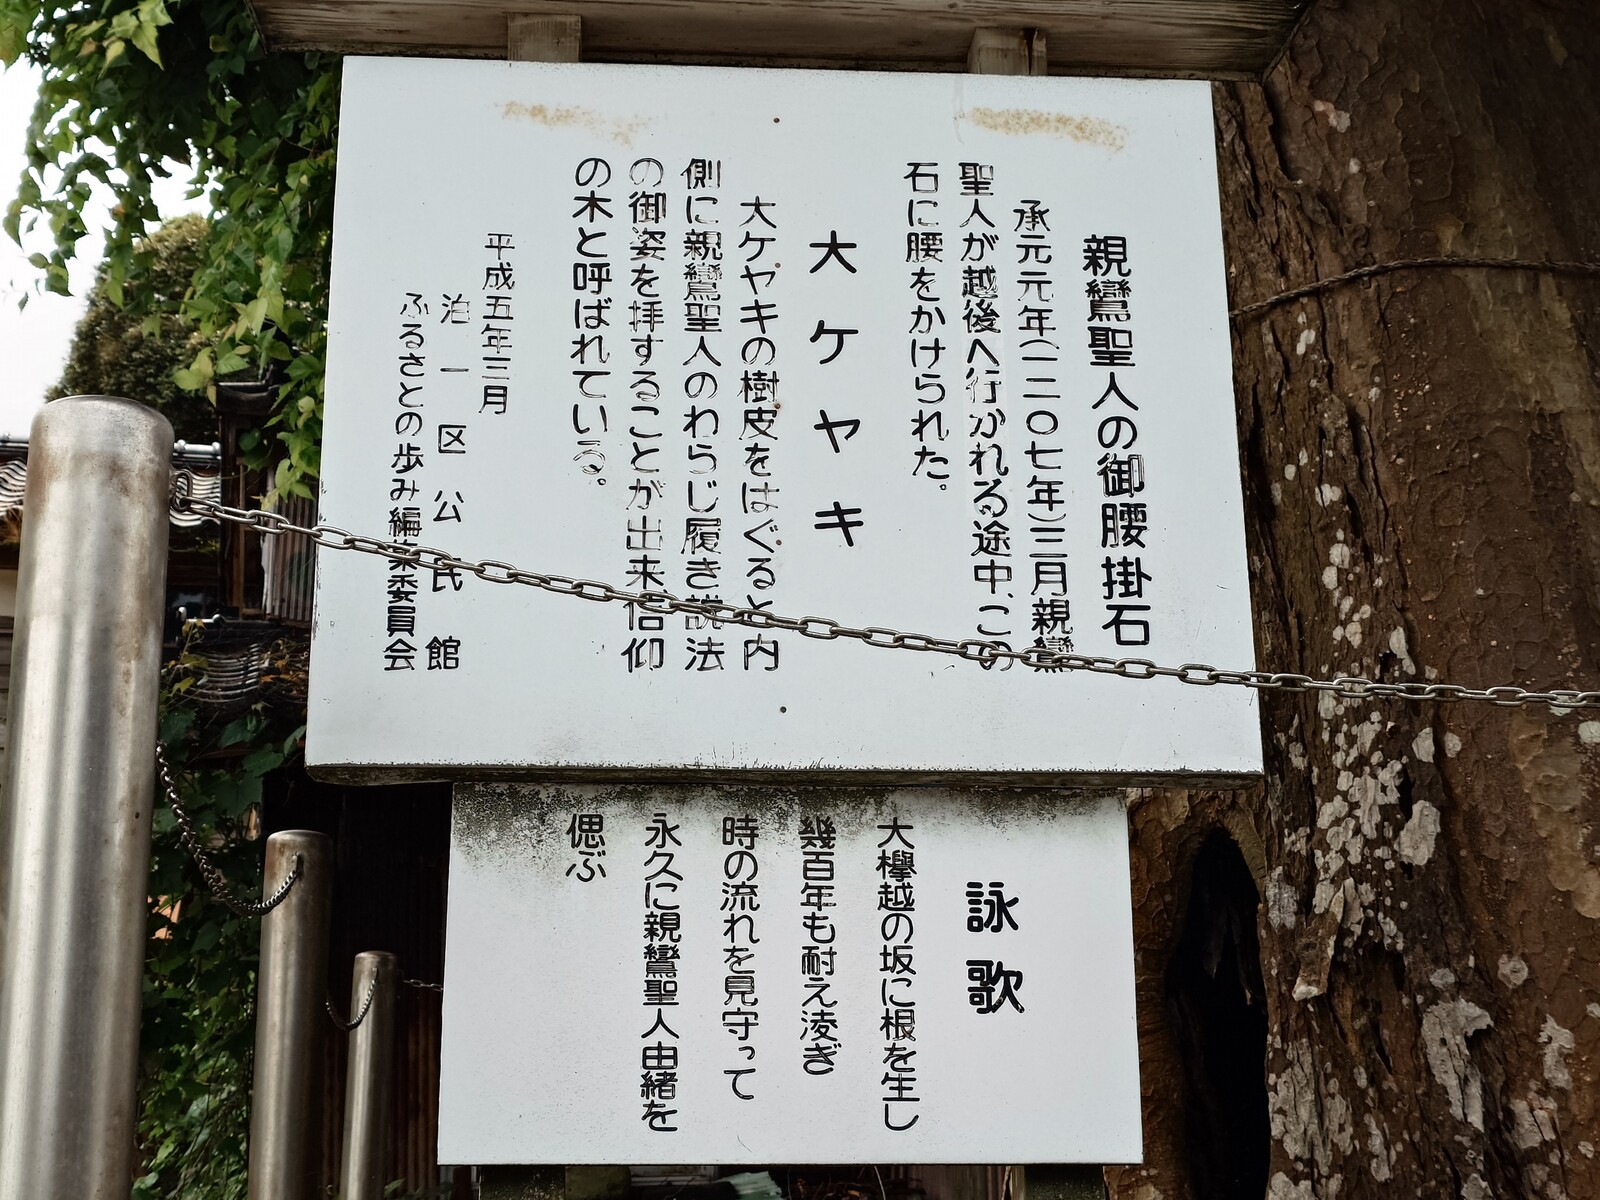 親鸞聖人の御腰掛石
承元元年(一二〇七年)三月親鸞
聖人が越後へ行かれる途中、この
石に腰をかけられた。
大ケヤキ
大ケヤキの樹皮をはぐると内
側に親鸞聖人のわらじ履き説法
の御姿を拝することが出来、信仰
の木と呼ばれている。
平成五年三月
泊一区公民館
ふるさとの歩み編集委員会
詠歌
大欅越の坂に根を生し
幾百年も耐え凌ぎ
時の流れを見守って
永久に親鸞聖人由緒を
偲ぶ